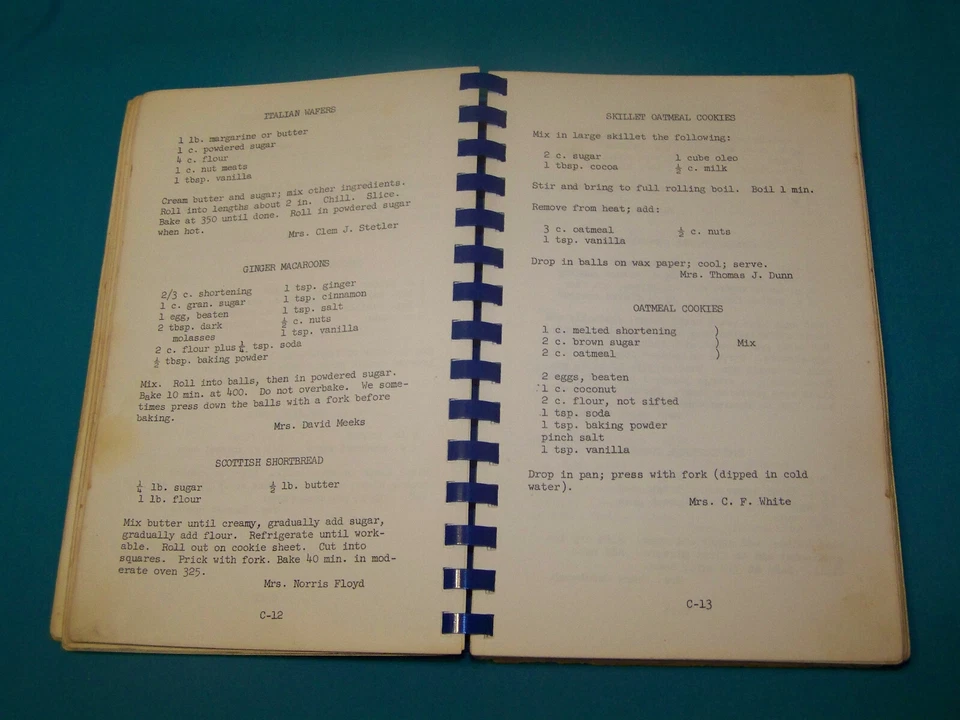 ITALIAN WAFERS
1 lb. margarine or butter
1 c. powdered sugar
4 c. flour
1 c. nut meats
1 tbsp. vanilla
Cream butter and sugar; mix other ingredients.
Roll into lengths about 2 in. Chill. Slice.
Bake at 350 until done. Roll in powdered sugar
when hot.
Mrs. Clem J. Stetler
GINGER MACAROONS
2/3 c. shortening 1 tsp. ginger
1 c. gran. sugar 1 tsp. cinnamon
1 egg, beaten 1 tsp. salt
2 tbsp. dark ½ c. nuts
molasses 1 tsp. vanilla
2 c. flour plus ¼ tsp. soda
½ tbsp. baking powder
Mix. Roll into balls, then in powdered sugar.
Bake 10 min. at 400. Do not overbake. We some-
times press down the balls with a fork before
baking.
Mrs. David Meeks
SCOTTISH SHORTBREAD
¼ lb. sugar ½ lb. butter
1 lb. flour
Mix butter until creamy, gradually add sugar,
gradually add flour. Refrigerate until work-
able. Roll out on cookie sheet. Cut into
squares. Prick with fork. Bake 40 min. in mod-
erate oven 325.
Mrs. Norris Floyd
C-12
SKILLET OATMEAL COOKIES
Mix in large skillet the following:
2 c. sugar 1 cube oleo
1 tbsp. cocoa ½ c. milk
Stir and bring to full rolling boil. Boil 1 min.
Remove from heat; add:
3 c. oatmeal ½ c. nuts
1 tsp. vanilla
Drop in balls on wax paper; cool; serve.
Mrs. Thomas J. Dunn
OATMEAL COOKIES
1 c. melted shortening )
2 c. brown sugar ) Mix
2 c. oatmeal )
2 eggs, beaten
1 c. coconut
2 c. flour, not sifted
1 tsp. soda
1 tsp. baking powder
pinch salt
1 tsp. vanilla
Drop in pan; press with fork (dipped in cold
water).
Mrs. C. F. White
C-13